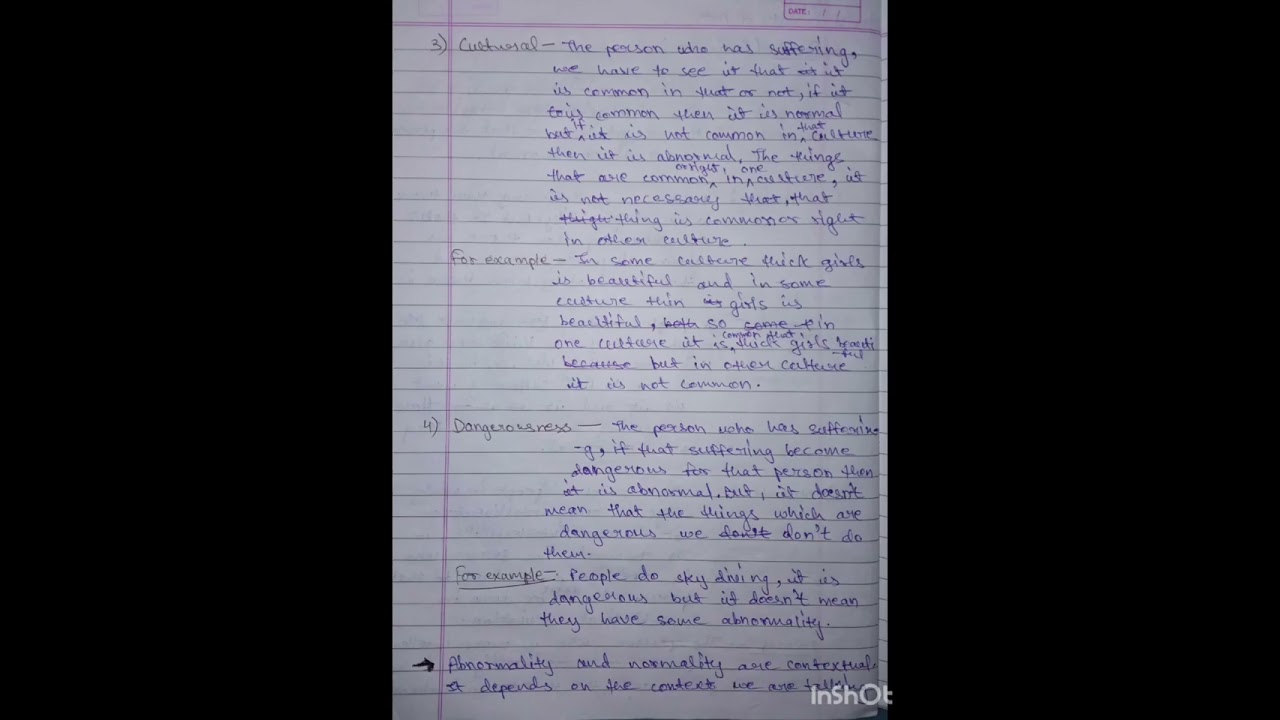 DATE: / /
3) Cultural – The person who has suffering,
we have to see it that it
is common in that or not, if it
is common then it is normal
but if it is not common in that culture
then it is abnormal. The things
that are common or right, in one culture, it
is not necessary that, that
thing is common or right
in other culture.
For example – In some culture thick girls
is beautiful and in some
culture thin girls is
beautiful, both so some in
one culture it is common that thick girls beauti
-ful
because but in other culture
it is not common.
4) Dangerousness – The person who has sufferin
-g, if that suffering become
dangerous for that person then
it is abnormal. But, it doesn't
mean that the things which are
dangerous we don't don't do
them.
For example – People do sky diving, it is
dangerous but it doesn't mean
they have some abnormality.
→ Abnormality and normality are contextual.
It depends on the context we are
InShOt